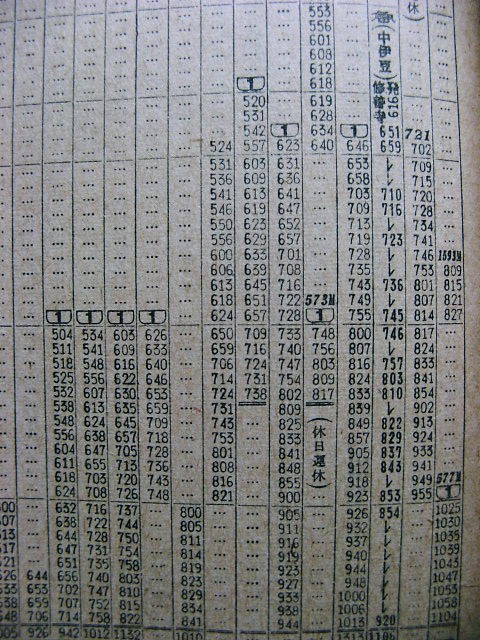 553 休
556 急
601 (中伊豆)
608
612
1 618 修善寺 616発
520 619
531 628
542 1 634 1 651 721
524 557 623 640 646 659 702
531 603 631 … 653 レ 709
536 609 636 … 658 レ 715
541 613 641 … 703 710 720
546 619 647 … 709 716 728
550 623 652 … 713 レ 734
556 629 657 … 719 723 741
600 633 701 … 728 レ 746 1593M
606 639 708 … 735 レ 753 809
613 645 716 … 743 736 801 815
618 651 722 573M 749 レ 807 821
1 1 1 1 … 624 657 728 1 755 745 814 827
504 534 603 626 … 650 709 733 748 800 746 817 …
511 541 609 633 … 659 716 740 756 807 レ 824 …
518 548 616 640 … 706 724 747 803 816 757 833 …
525 556 622 646 … 714 731 754 809 824 803 841 …
532 607 630 653 … 724 738 802 817 833 810 854 …
538 613 635 659 … 731 809 839 レ 902 …
548 624 645 709 … 743 … 825 (休日運休) 849 822 913 …
556 638 657 718 … 753 … 833 857 829 924 …
604 647 705 728 … 801 … 841 905 837 933 …
611 655 713 736 … 808 … 848 912 843 941 …
618 703 720 743 … 816 … 855 918 レ 949 577M
624 708 726 748 … 821 … 900 923 853 955 1
632 716 737 … 800 … … 905 … 926 854 … 1025
638 722 744 … 805 … … 911 … 932 レ … 1030
644 728 750 … 811 … … 916 … 937 レ … 1035
647 731 754 … 814 … … 919 … 940 レ … 1039
651 735 758 … 819 … … 923 … 944 レ … 1043
626 644 656 740 803 … 823 … … 927 … 948 レ … 1047
633 653 702 747 810 … 829 … … 933 … 1000 レ … 1053
638 659 707 752 815 … 834 … … 938 … 1006 レ … 1058
648 706 714 758 822 … 841 … … 944 … 1013 920 … 1104
905 926 942 1012 1132 … 1010